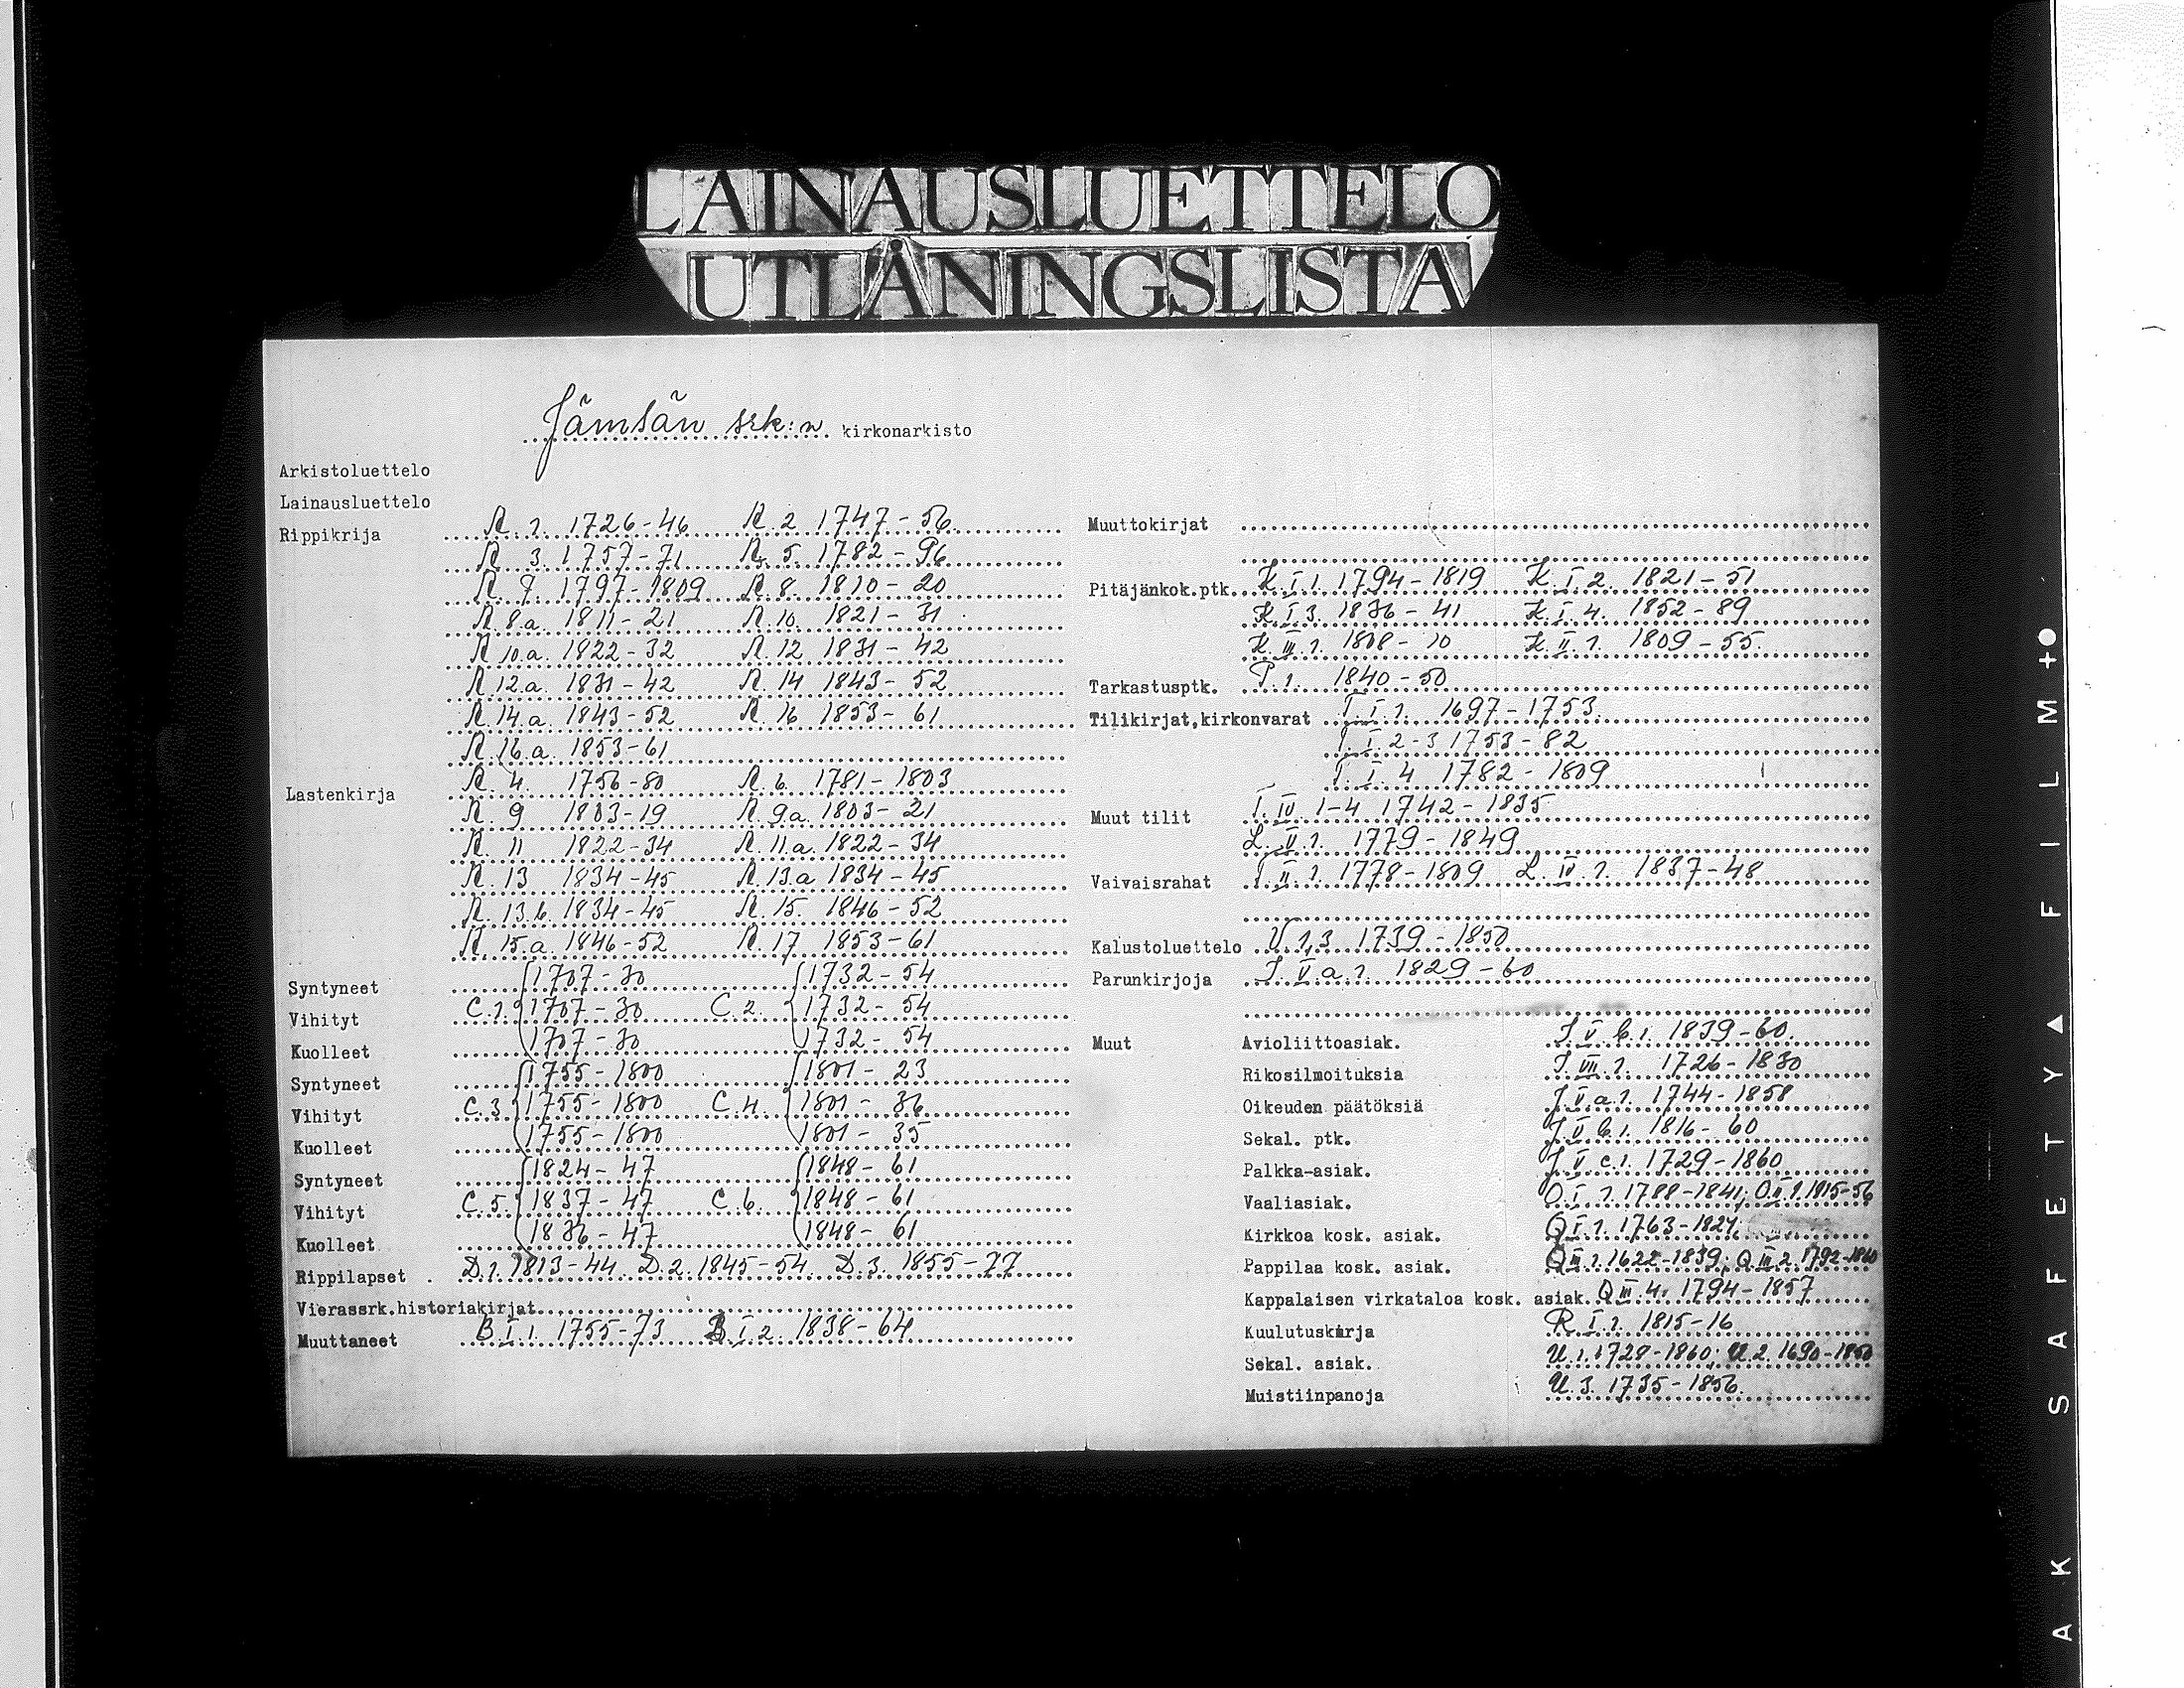 LAINAUSLUETTELO
UTLÅNINGSLISTA
Jämsän srk:n kirkonarkisto
Arkistoluettelo
Lainausluettelo
Rippikrija R. 1. 1726-46 R. 2 1747-56
R 3. 1757-71 R. 5. 1782-96
R. 7. 1797-1809 R. 8. 1810-20
R. 8.a. 1811-21 R. 10. 1821-31
R 10.a. 1822-32 R. 12 1831-42
R 12.a. 1831-42 R. 14 1843-52
R. 14.a. 1843-52 R. 16 1853-61
R. 16.a. 1853-61
Lastenkirja R. 4. 1756-80 R. 6. 1781-1803
R. 9 1803-19 R. 9.a. 1803-21
R. 11 1822-34 R. 11.a. 1822-34
R. 13 1834-45 R. 13.a 1834-45
R. 13.b. 1834-45 R. 15. 1846-52
R. 15.a. 1846-52 R. 17 1853-61
Syntyneet 1707-30 1732-54
Vihityt C.1. 1707-30 C.2. 1732-54
Kuolleet 1707-30 1732-54
Syntyneet 1755-1800 1801-23
Vihityt C.3. 1755-1800 C.4. 1801-36
Kuolleet 1755-1800 1801-35
Syntyneet 1824-47 1848-61
Vihityt C.5. 1837-47 C.6. 1848-61
Kuolleet 1836-47 1848-61
Rippilapset D.1. 1813-44. D.2. 1845-54. D.3. 1855-77
Vierassrk.historiakirjat
Muuttaneet B.I.1. 1755-73 B.I.2. 1838-64
Muuttokirjat
Pitäjänkok.ptk. K.I.1. 1794-1819 K.I.2. 1821-51
K.I.3. 1836-41 K.I.4. 1852-89
K.III.1. 1808-10 K.II.1. 1809-55.
Tarkastusptk. P.1. 1840-50
Tilikirjat,kirkonvarat T.I.1. 1697-1753.
T.I.2-3 1753-82
T.I.4 1782-1809
Muut tilit T.IV. 1-4 1742-1835
L.V.1. 1779-1849
Vaivaisrahat T.II.1. 1778-1809 L.IV.1. 1837-48
Kalustoluettelo U 1,3 1739-1850
Parunkirjoja I.V.a.1. 1829-60
Muut Avioliittoasiak. I.V.b.1. 1839-60.
Rikosilmoituksia I.VII.1. 1726-1830
Oikeuden päätöksiä J.V.a.1. 1744-1858
Sekal. ptk. J.V.b.1. 1816-60
Palkka-asiak. J.V.c.1. 1729-1860
Vaaliasiak. O.I.1. 1788-1841; O.II.1. 1815-56
Kirkkoa kosk. asiak. Q I.1. 1763-1824;
Pappilaa kosk. asiak. Q III.1. 1622-1839; Q III.2. 1792-1860
Kappalaisen virkataloa kosk. asiak. Q III.4. 1794-1857
Kuulutuskirja R.I.1. 1815-16
Sekal. asiak. U.1. 1728-1860; U.2. 1690-1850
Muistiinpanoja U.3. 1735-1856.
AK SAFETY▲FILM+●